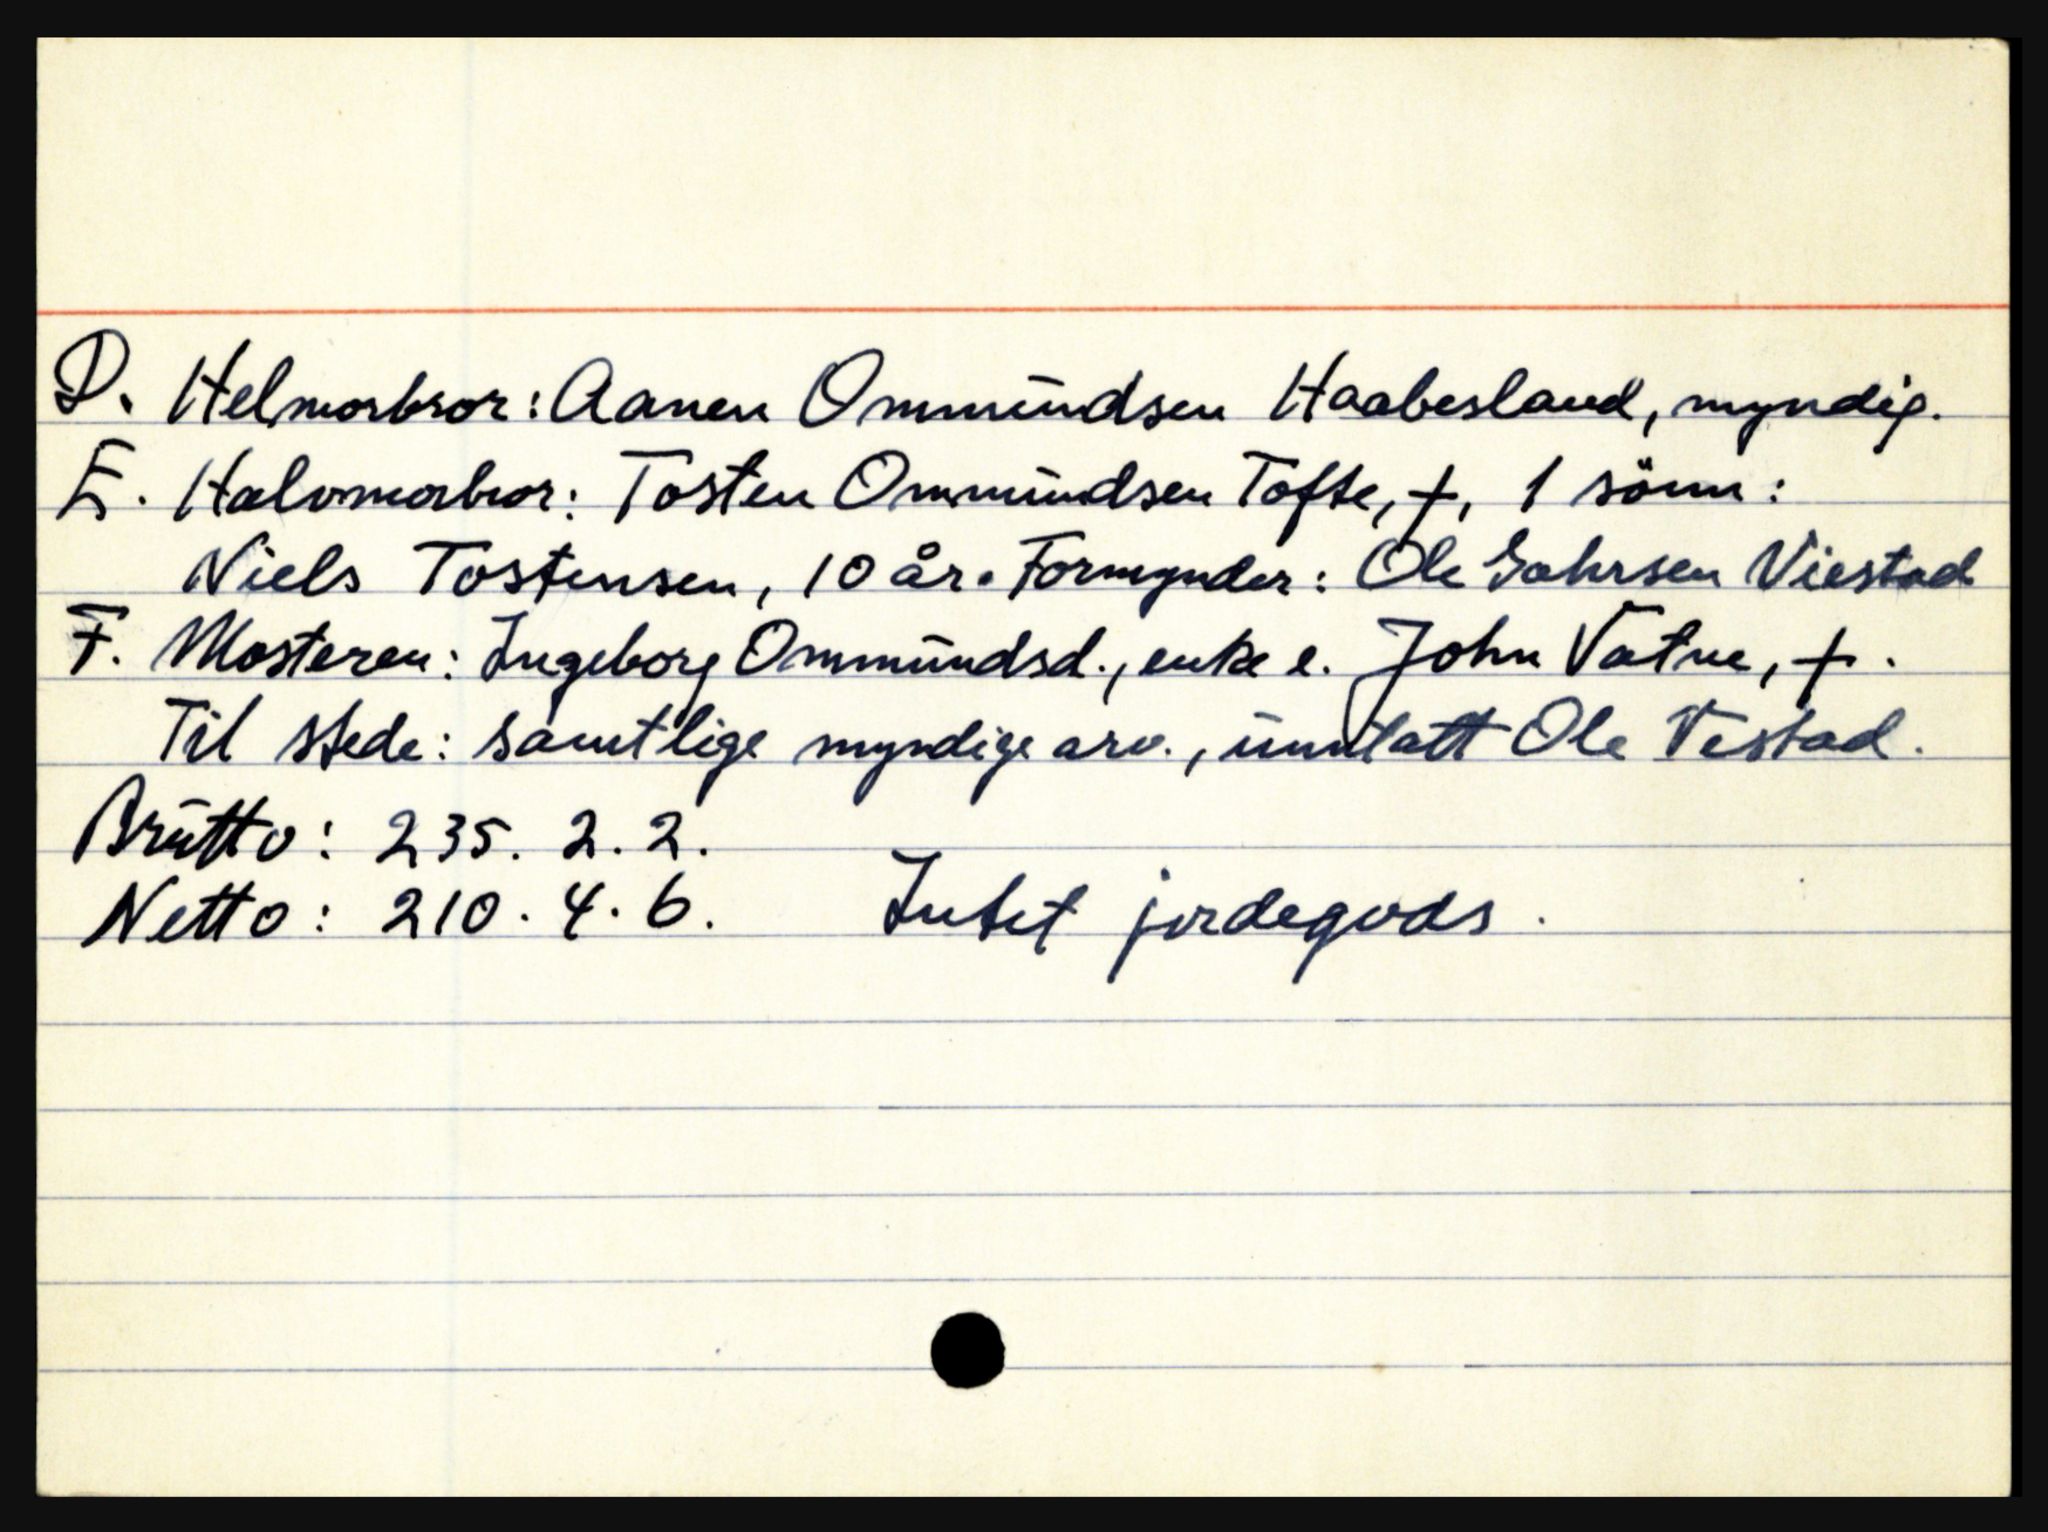 D. Helmorbror: Aanen Ommundsen Haabesland, myndig.
E. Halvmorbror: Tosten Ommundsen Tofte, +, 1 sönn:
Niels Tostensen, 10 år. Formynder: Ole Gahrsen Viestad
F. Mosteren: Ingeborg Ommundsd., enke e. John Vatne, +.
Til stede: samtlige myndige arv., unntatt Ole Vestad.
Brutto: 235. 2. 2.
Netto: 210. 4. 6. Intet jordegods.